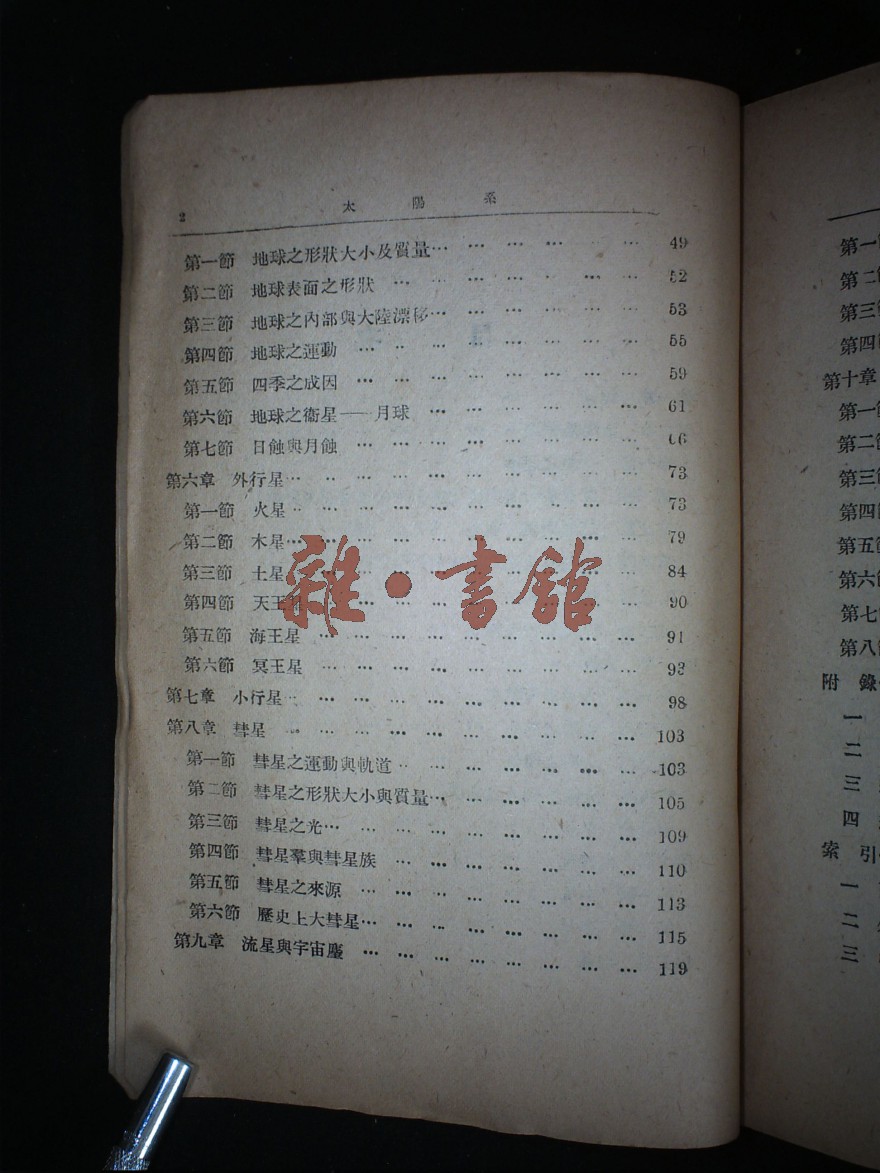 2 太陽系
第一節 地球之形狀大小及質量… … … … … … 49
第二節 地球表面之形狀 … … … … … … … 52
第三節 地球之內部與大陸漂移… … … … … … 53
第四節 地球之運動 … … … … … … … … 55
第五節 四季之成因 … … … … … … … … 59
第六節 地球之衞星——月球 … … … … … … 61
第七節 日蝕與月蝕 … … … … … … … … 66
第六章 外行星… … … … … … … … … … 73
第一節 火星… … … … … … … … … … 73
第二節 木星… … … … … … … … … … 79
第三節 土星… … … … … … … … … … 84
第四節 天王星 … … … … … … … … … 90
第五節 海王星 … … … … … … … … … 91
第六節 冥王星 … … … … … … … … … 93
第七章 小行星… … … … … … … … … … 98
第八章 彗星 … … … … … … … … … … 103
第一節 彗星之運動與軌道… … … … … … … 103
第二節 彗星之形狀大小與質量… … … … … … 105
第三節 彗星之光… … … … … … … … … 109
第四節 彗星羣與彗星族 … … … … … … … 110
第五節 彗星之來源 … … … … … … … … 113
第六節 歷史上大彗星… … … … … … … … 115
第九章 流星與宇宙塵 … … … … … … … … 119
雜·書館
第一
第二
第三
第四
第十章
第一
第二
第三
第四
第五
第六
第七
第八
附 錄
一
二
三
四
索 引
一
二
三